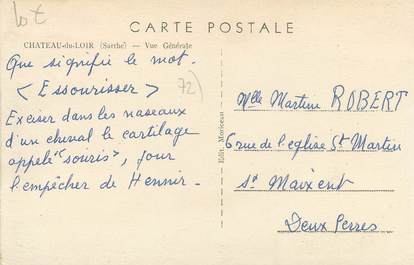 Lot
CARTE POSTALE
CHATEAU-du-LOIR (Sarthe) — Vue Générale
Que signifie le mot.
< Essourisser >
72)
Exciser dans les naseaux
d'un cheval le cartilage
appelé "souris", pour
l'empêcher de Hennir -
Edit. Moriceau
Mlle Martine ROBERT
6 rue de l'eglise St Martin
St Maixent
Deux Sevres